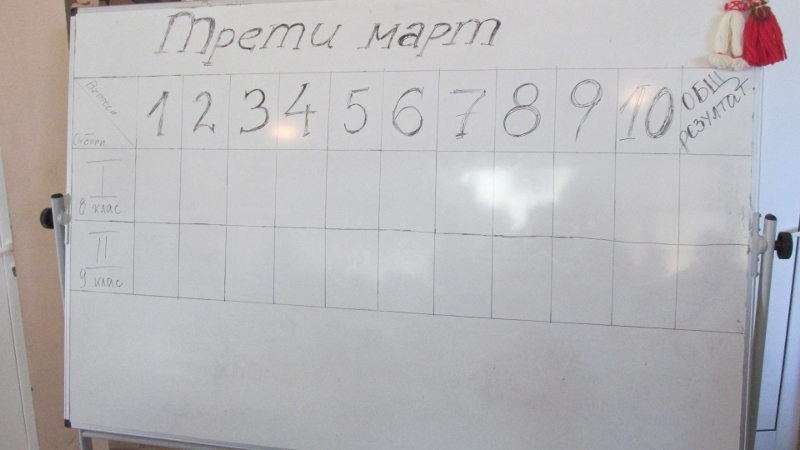 Трети март
Въпроси
Отбори
1 2 3 4 5 6 7 8 9 10
ОБЩ
РЕЗУЛТАТ.
I
8 клас
II
9 клас